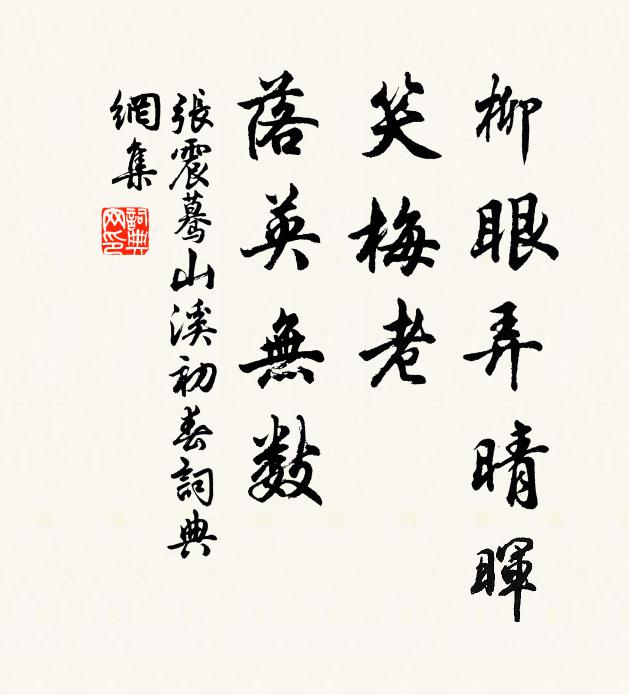 柳眼弄晴暉
笑梅老
落英無數
張震驀山溪初春詞典
網集
詞典
网印